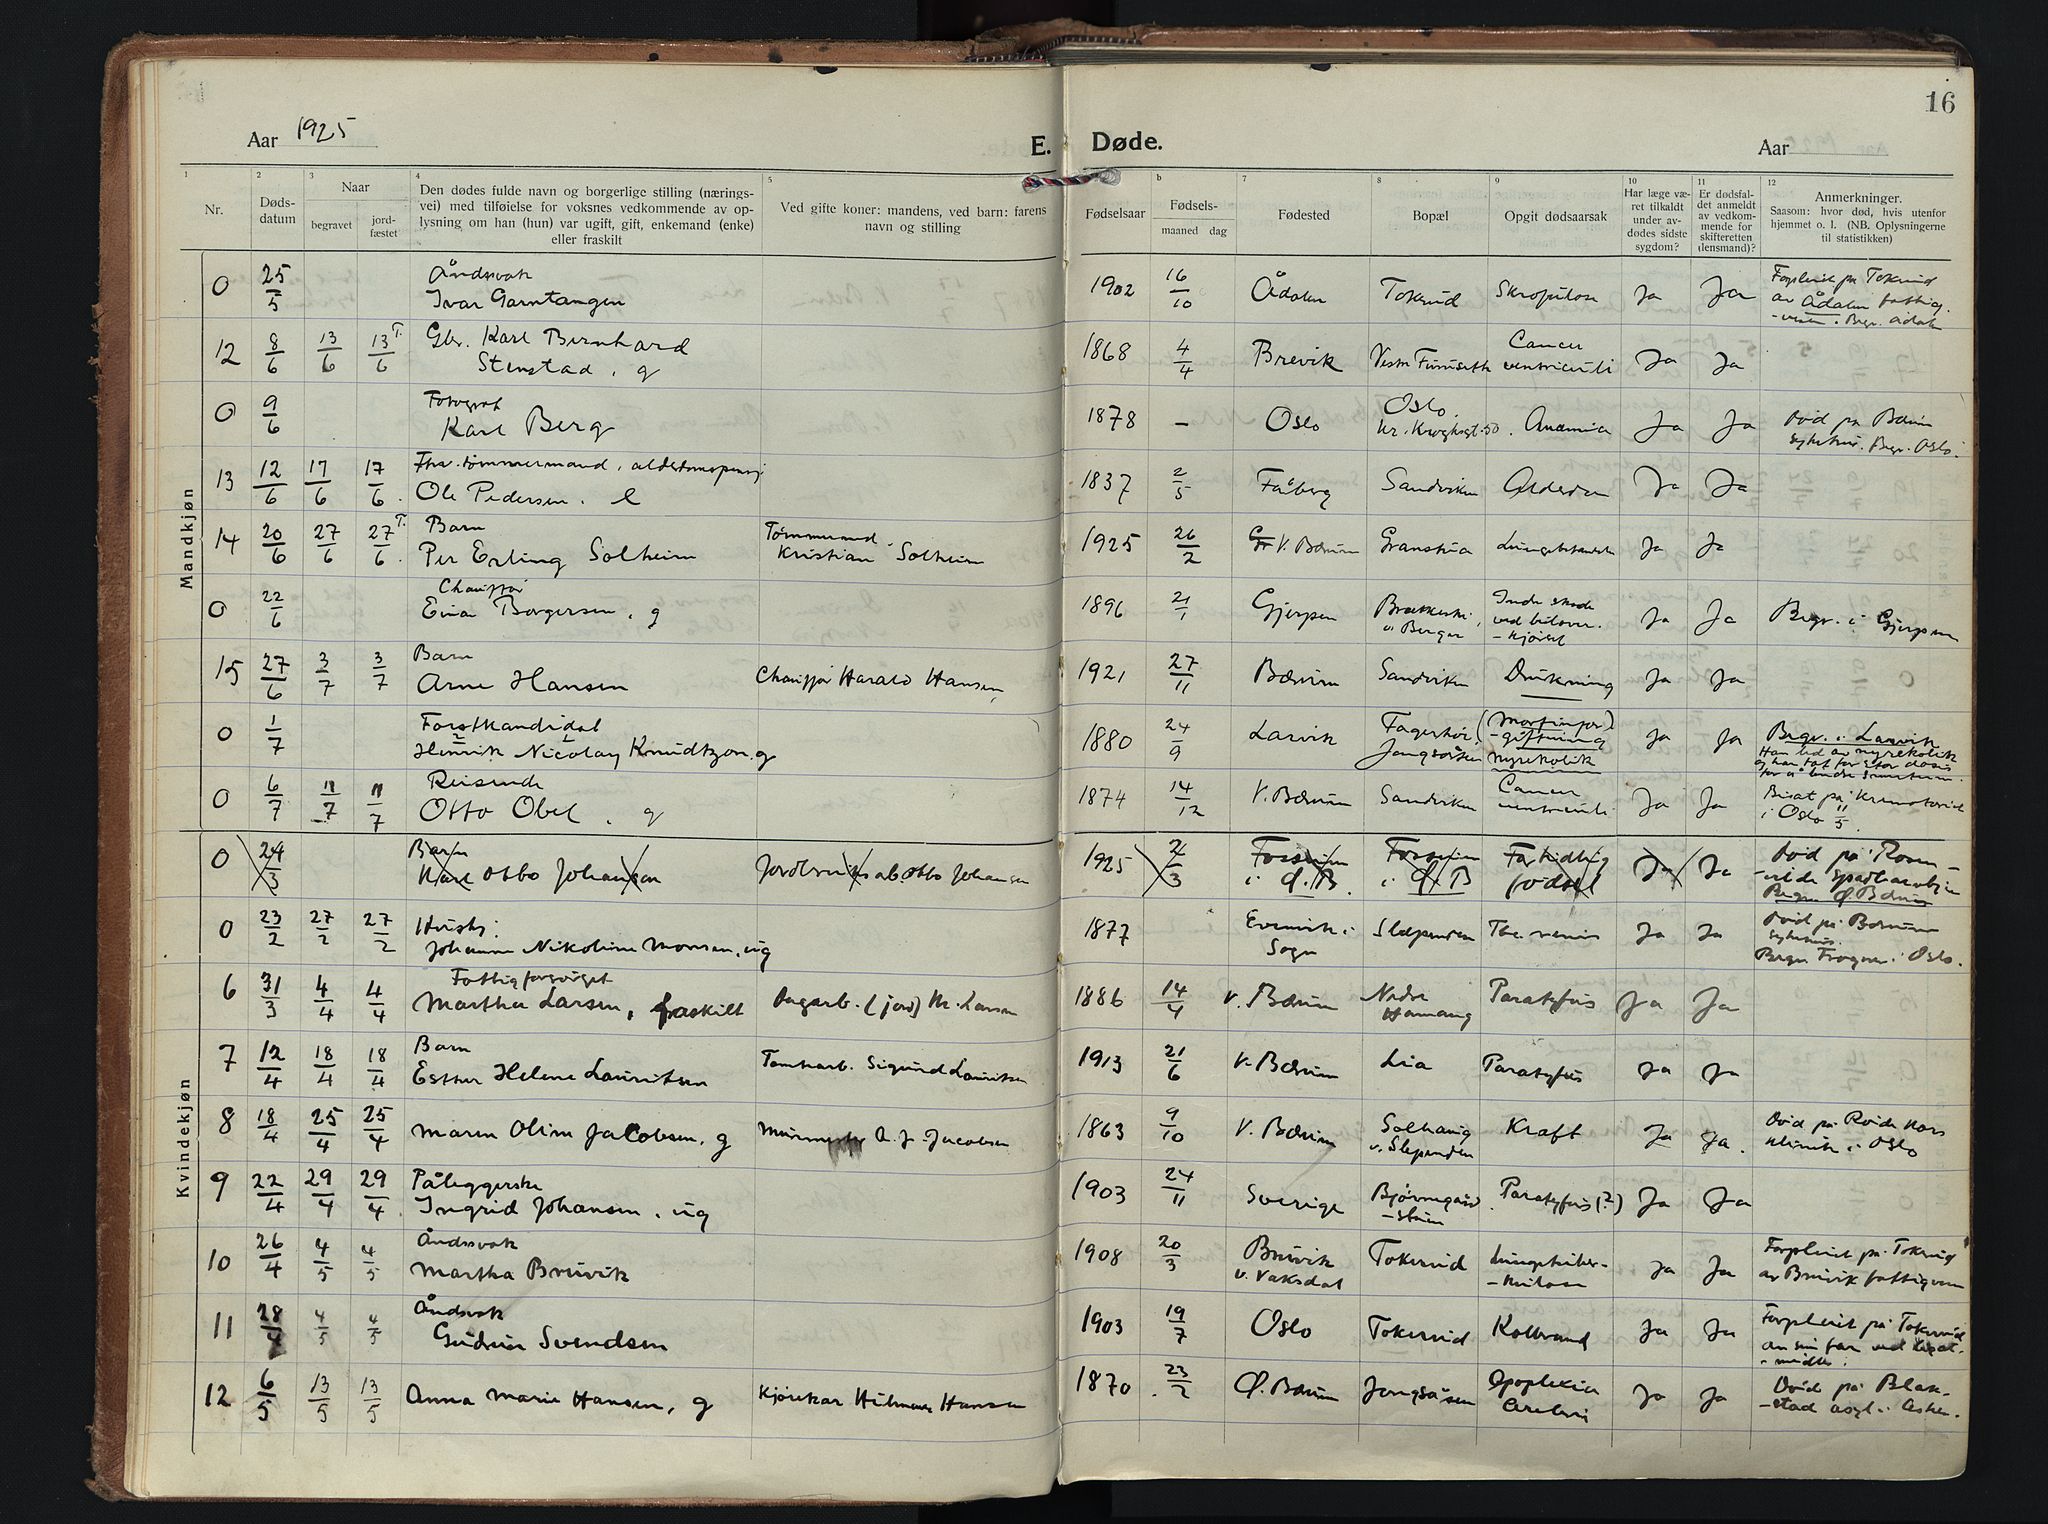 16
Aar 1925
E. Døde.
Aar
1
2
3
4
5
b
7
8
9
10
11
12
Nr.
Døds-
datum
Naar
begravet
jord-
fæstet
Den dødes fulde navn og borgerlige stilling (nærings-
vei) med tilføielse for voksnes vedkommende av op-
lysning om han (hun) var ugift, gift, enkemand (enke)
eller fraskilt
Ved gifte koner: mandens, ved barn: farens
navn og stilling
Fødselsaar
Fødsels-
maaned dag
Fødested
Bopæl
Opgit dødsaarsak
Har læge væ-
ret tilkaldt
under av-
dødes sidste
sygdom?
Er dødsfal-
det anmeldt
av vedkom-
mende for
skifteretten
(lensmand)?
Anmerkninger.
Saasom: hvor død, hvis utenfor
hjemmet o. l. (NB. Oplysningerne
til statistikken)
Mandkjøn
0 25/5 Åndssvak
Ivar Garntangen 1902 16/10 Ådalen Tokerud Skrofulose Ja Ja Forpleiet på Tokerud
av Ådalen fattig-
vesen. Begr. Ådalen
12 8/6 13/6 13/6 T. Gbr. Karl Bernhard
Stenstad, g 1868 4/4 Brevik Vestre Furuseth Cancer
ventriculi Ja Ja
0 9/6 Fotograf
Karl Berg 1878 - Oslo Oslo.
Kr. Kroghsgt. 50. Anæmia Ja Ja Død på Bærum
sykehus. Begr. Oslo.
13 12/6 17/6 17/6. Fhv. tømmermand, alderdomspensj
Ole Pedersen. e 1837 2/5 Fåberg Sandviken Alderdom Ja Ja
14 20/6 27/6 27/6 T. Barn
Per Erling Solheim Tømmermd.
Kristian Solheim 1925 26/2 V. Bærum Granstua Lungebetændelse Ja Ja
0 22/6 Chauffør
Einar Borgersen, g 1896 21/1 Gjerpen
v. Berger Indre skade
ved bilover-
-kjørsel Ja Ja Begr. i Gjerpen
15 27/6 3/7 3/7 Barn
Arne Hansen Chauffør Harald Hansen 1921 27/11 Bærum Sandviken Drukning Ja Ja
0 1/7 Forstkandidat
Henrik Nicolay Knudtzon, g 1880 24/9 Larvik
Jongsåsen (Morfinfor-
-giftning)
Nyrekolik Ja Ja Begr. i Larvik
Han led av nyrekolik
og han tat for stor dosis
for å lindre smerten.
0 6/7 11/7 11/7 Reisende
Otto Obel, g 1874 14/12 V. Bærum Sandviken Cancer
ventriculi Ja Ja Bisat på Krematoriet
i Oslo 11/5.
Kvindekjøn
0 24/3 Barn
Karl Otto Johansen Jordbruksarb. Otto Johansen 1925 2/3
i Ø. B.
i Ø. B For tidlig
fødsel Ja Ja Død på Rosen-
Begr. Ø. Bærum
0 23/2 27/2 27/2 Hush:
Johanne Nikoline Monsen, ug 1877
Sogn Slæpenden Ja Ja Død på Bærum
sykehus.
Begr. Frogner i Oslo.
6 31/3 4/4 4/4 Fattigforsørget
Martha Larsen, fraskilt Dagarb. (jord) Kr. Larsen 1886 14/4 V. Bærum Nedre
Hamang Paratyfus Ja Ja
7 12/4 18/4 18/4 Barn
Esther Helene Lauritsen Tomtearb. Sigurd Lauritsen 1913 21/6 V. Bærum Lia Paratyfus Ja Ja
8 18/4 25/4 25/4 Maren Oline Jacobsen, g Murmester A. J. Jacobsen 1863 9/10 V. Bærum Solhaug
v. Slependen Kræft Ja Ja. Død på Røde Kors
klinik i Oslo
9 22/4 29/4 29/4 Påleggerske
Ingrid Johansen, ug 1903 24/11 Sverige Bjørnegård
-stuen Paratyfus (?) Ja Ja
10 26/4 4/5 4/5 Åndssvak
Martha Bruvik 1908 20/3 Bruvik
v. Vaksdal Tokerud Lungetuber-
-kulose Ja Ja Forpleiet på Tokerud
av Bruvik fattigvesen
11 28/4 4/5 4/5 Åndssvak
Gudrun Svendsen 1903 19/7 Oslo Tokerud Koldbrand Ja Ja Forpleiet på Tokerud
av sin far ved
-midler.
12 6/5 13/5 13/5 Anna Marie Hansen, g Kjørekar Hilmar Hansen 1870 23/2 Ø. Bærum Jongsåsen Apoplexia
cerebri Ja Ja Død på Blak-
-stad asyl i Asker.